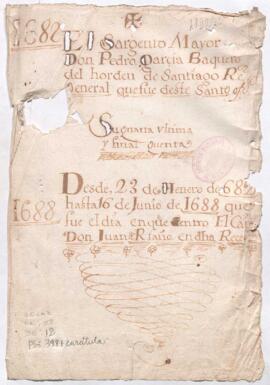 1688
El Sargento Mayor
Don Pedro Garcia Baquero
del horden de Santiago Re
General que fue deste Santo ofi
Su quarta vltima
y final quenta
Desde, 23 de Henero de 68
hasta 16 de Junio de 1688 que
fue el dia en que entro El Ca
1688
Don Juan Riaño en dha Rece
12
caratula